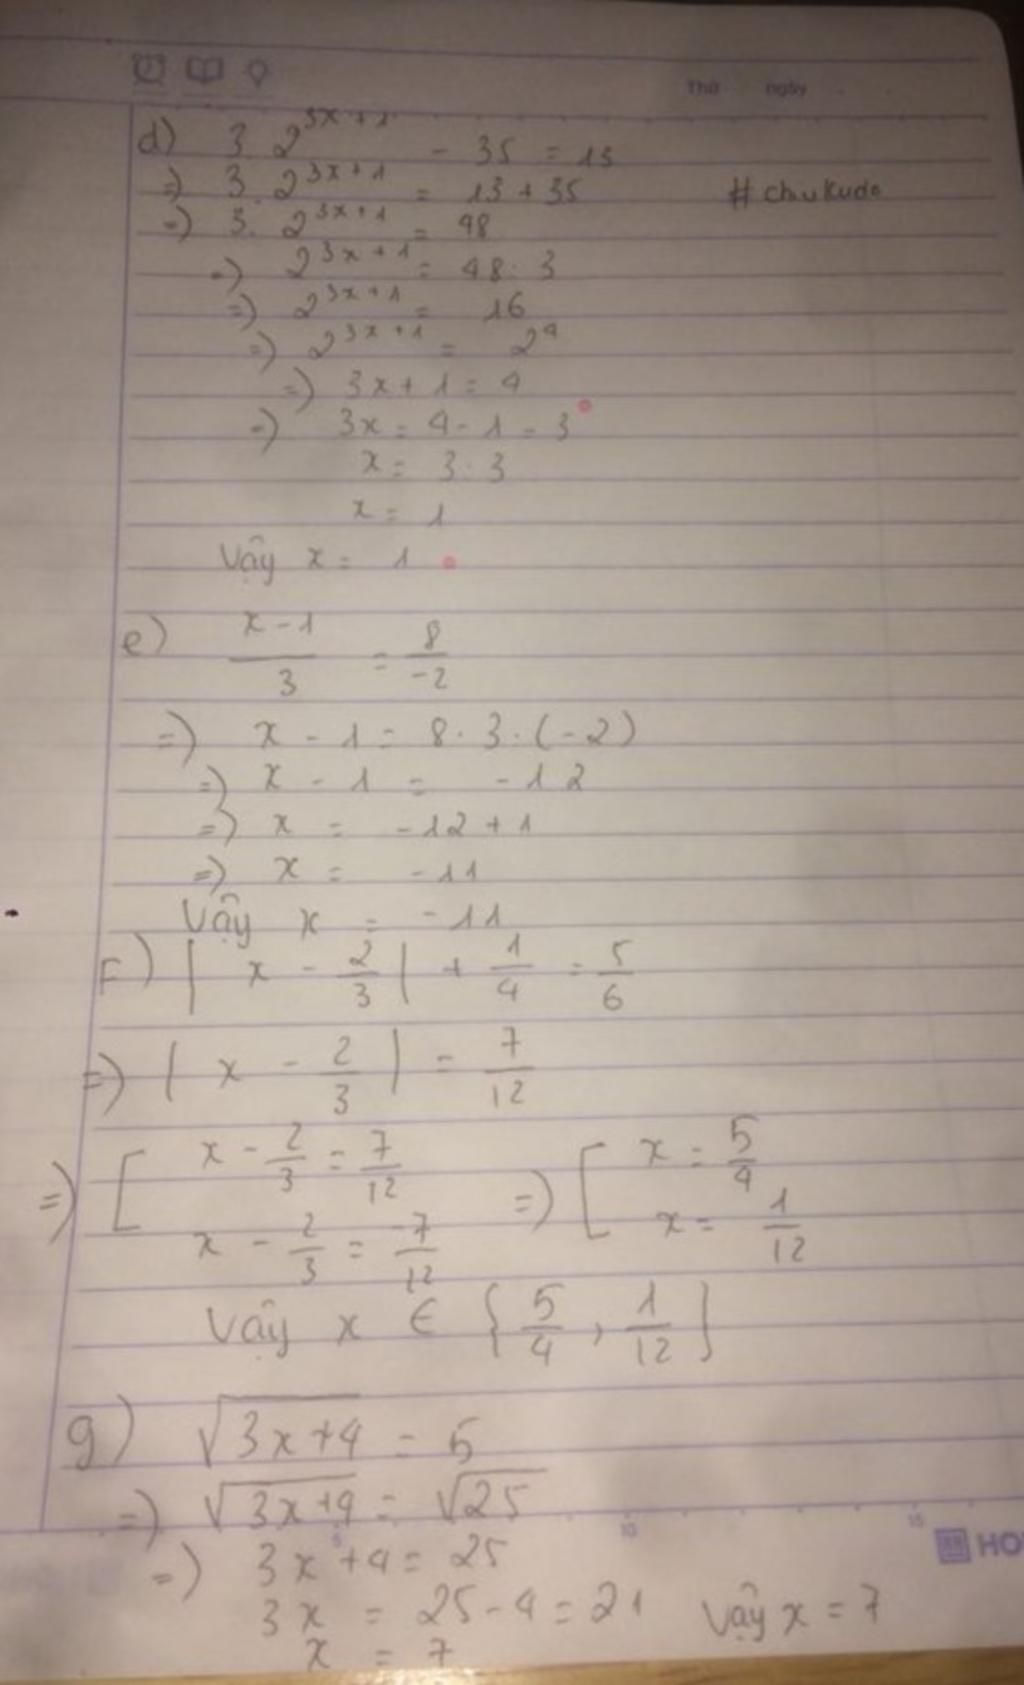 Thứ ngày
d) 3.2^{3x+1} - 35 = 13
=) 3.2^{3x+1} = 13 + 35 # chukudo
=) 3.2^{3x+1} = 48
=) 2^{3x+1} = 48 : 3
=) 2^{3x+1} = 16
=) 2^{3x+1} = 2^4
=) 3x + 1 = 4
=) 3x = 4 - 1 = 3
x = 3 : 3
x = 1
Vậy x = 1
e) \frac{x-1}{3} = \frac{8}{-2}
=) x - 1 = 8 . 3 : (-2)
=) x - 1 = -12
=) x = -12 + 1
=) x = -11
Vậy x = -11
F) | x - \frac{2}{3} | + \frac{1}{4} = \frac{5}{6}
=) | x - \frac{2}{3} | = \frac{7}{12}
=) [ x - \frac{2}{3} = \frac{7}{12} =) [ x = \frac{5}{4}
x - \frac{2}{3} = \frac{-7}{12} x = \frac{1}{12}
Vậy x ∈ { \frac{5}{4} , \frac{1}{12} }
g) √(3x+4) = 5
=) √(3x+4) = √25
5 10 15
HO
=) 3x + 4 = 25
3x = 25 - 4 = 21 Vậy x = 7
x = 7